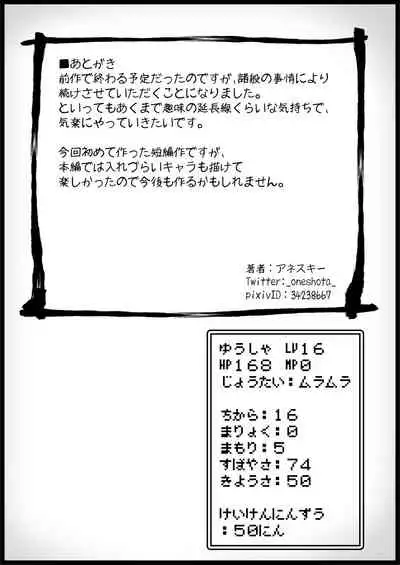 ■あとがき
前作で終わる予定だったのですが、諸般の事情により
続けさせていただくことになりました。
といってもあくまで趣味の延長線くらいな気持ちで、
気楽にやっていきたいです。
今回初めて作った短編作ですが、
本編では入れづらいキャラも描けて
楽しかったので今後も作るかもしれません。
著者：アネスキー
Twitter:_oneshota_
pixivID：34238667
ゆうしゃ LV16
HP168 MP0
じょうたい：ムラムラ
ちから：16
まりょく：0
まもり：5
すばやさ：74
きようさ：50
けいけんにんずう
：50にん